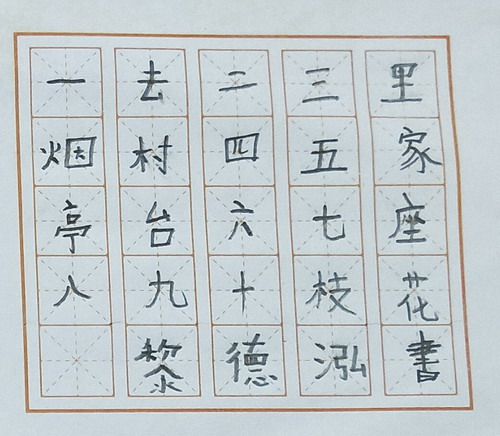 一去二三里
烟村四五家
亭台六七座
八九十枝花
黎德泓書